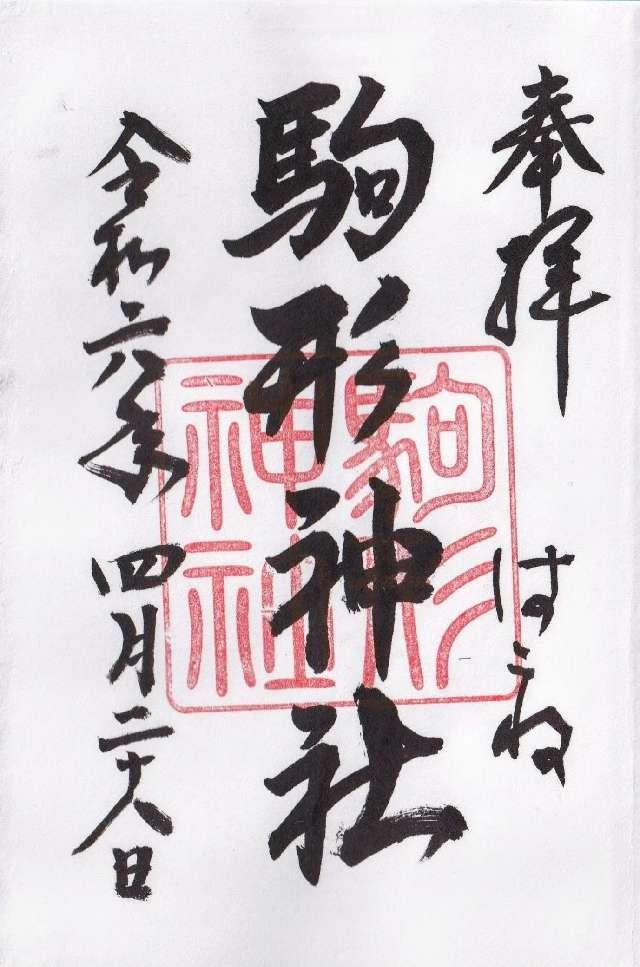 奉拝
はこね
駒形神社
駒形
神社
令和六年四月二十八日